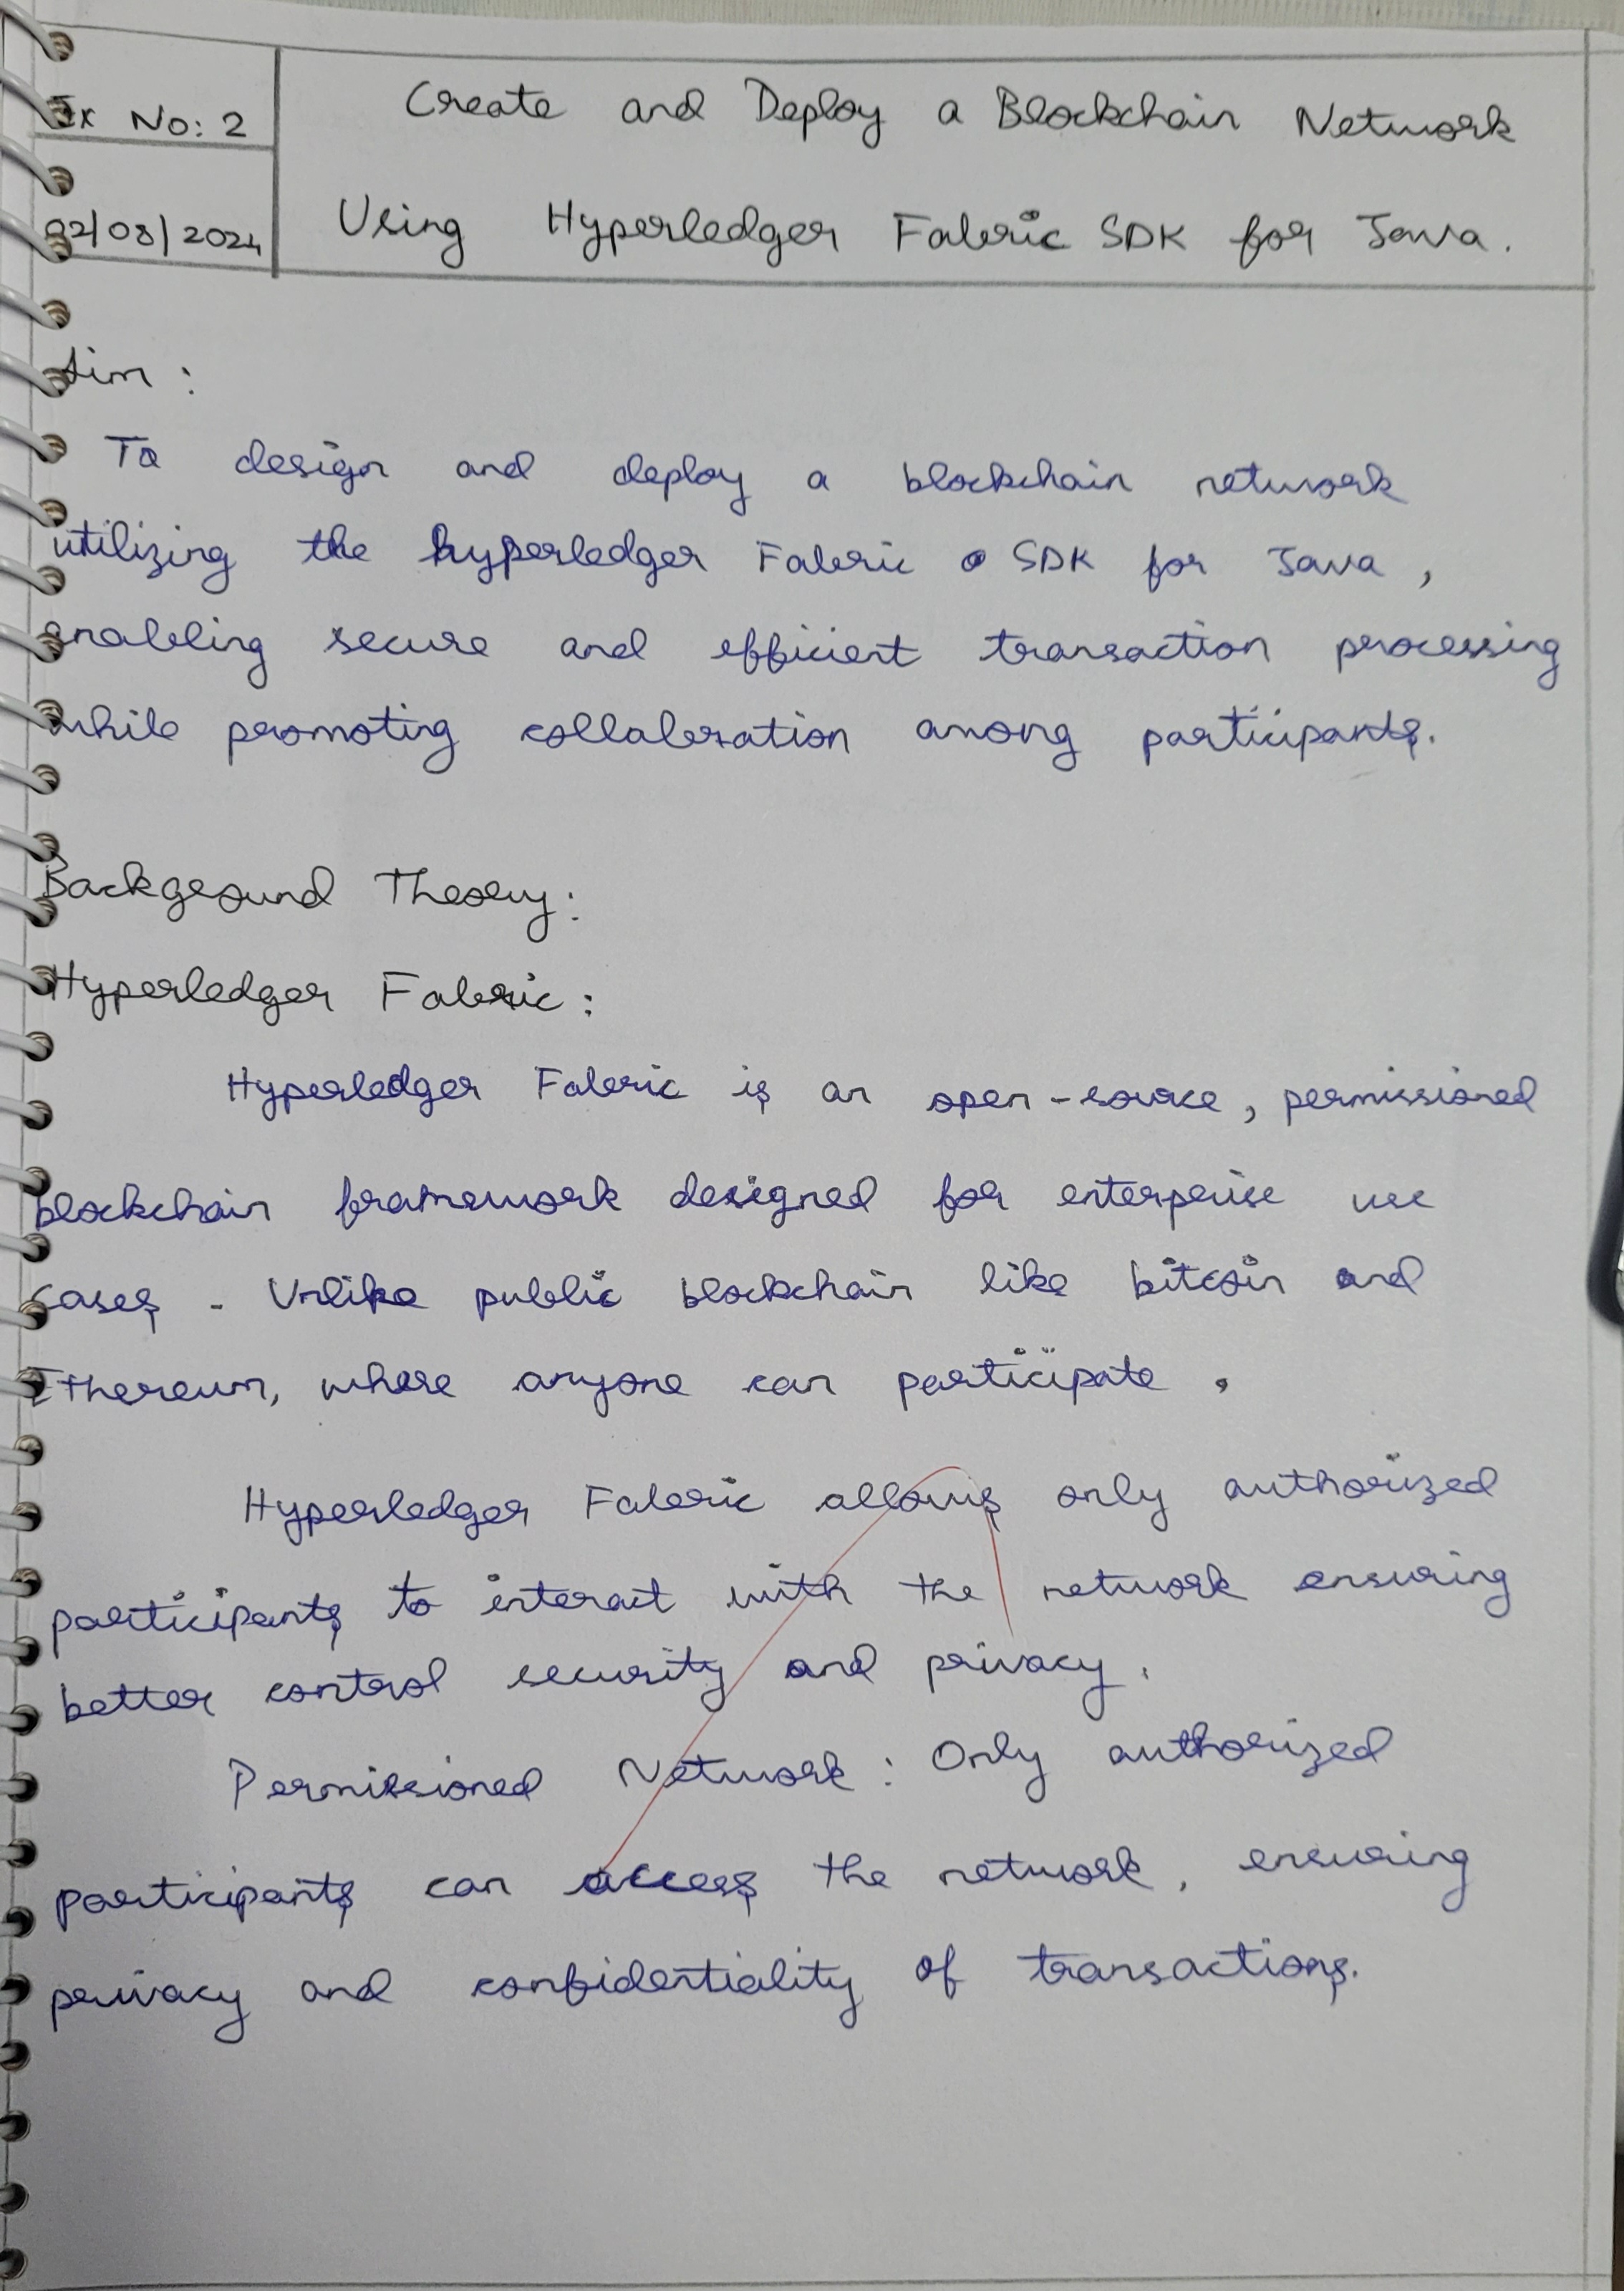 Ex No: 2
Create and Deploy a Blockchain Network
02/08/2024
Using Hyperledger Fabric SDK for Java.
Aim :
To design and deploy a blockchain network
utilizing the hyperledger Fabric SDK for Java,
enabling secure and efficient transaction processing
while promoting collaboration among participants.
Background Theory:
Hyperledger Fabric :
Hyperledger Fabric is an open-source, permissioned
blockchain framework designed for enterprise use
cases. Unlike public blockchain like bitcoin and
Ethereum, where anyone can participate.
Hyperledger Fabric allows only authorized
participants to interact with the network ensuring
better control security and privacy.
Permissioned Network : Only authorized
participants can access the network, ensuring
privacy and confidentiality of transactions.